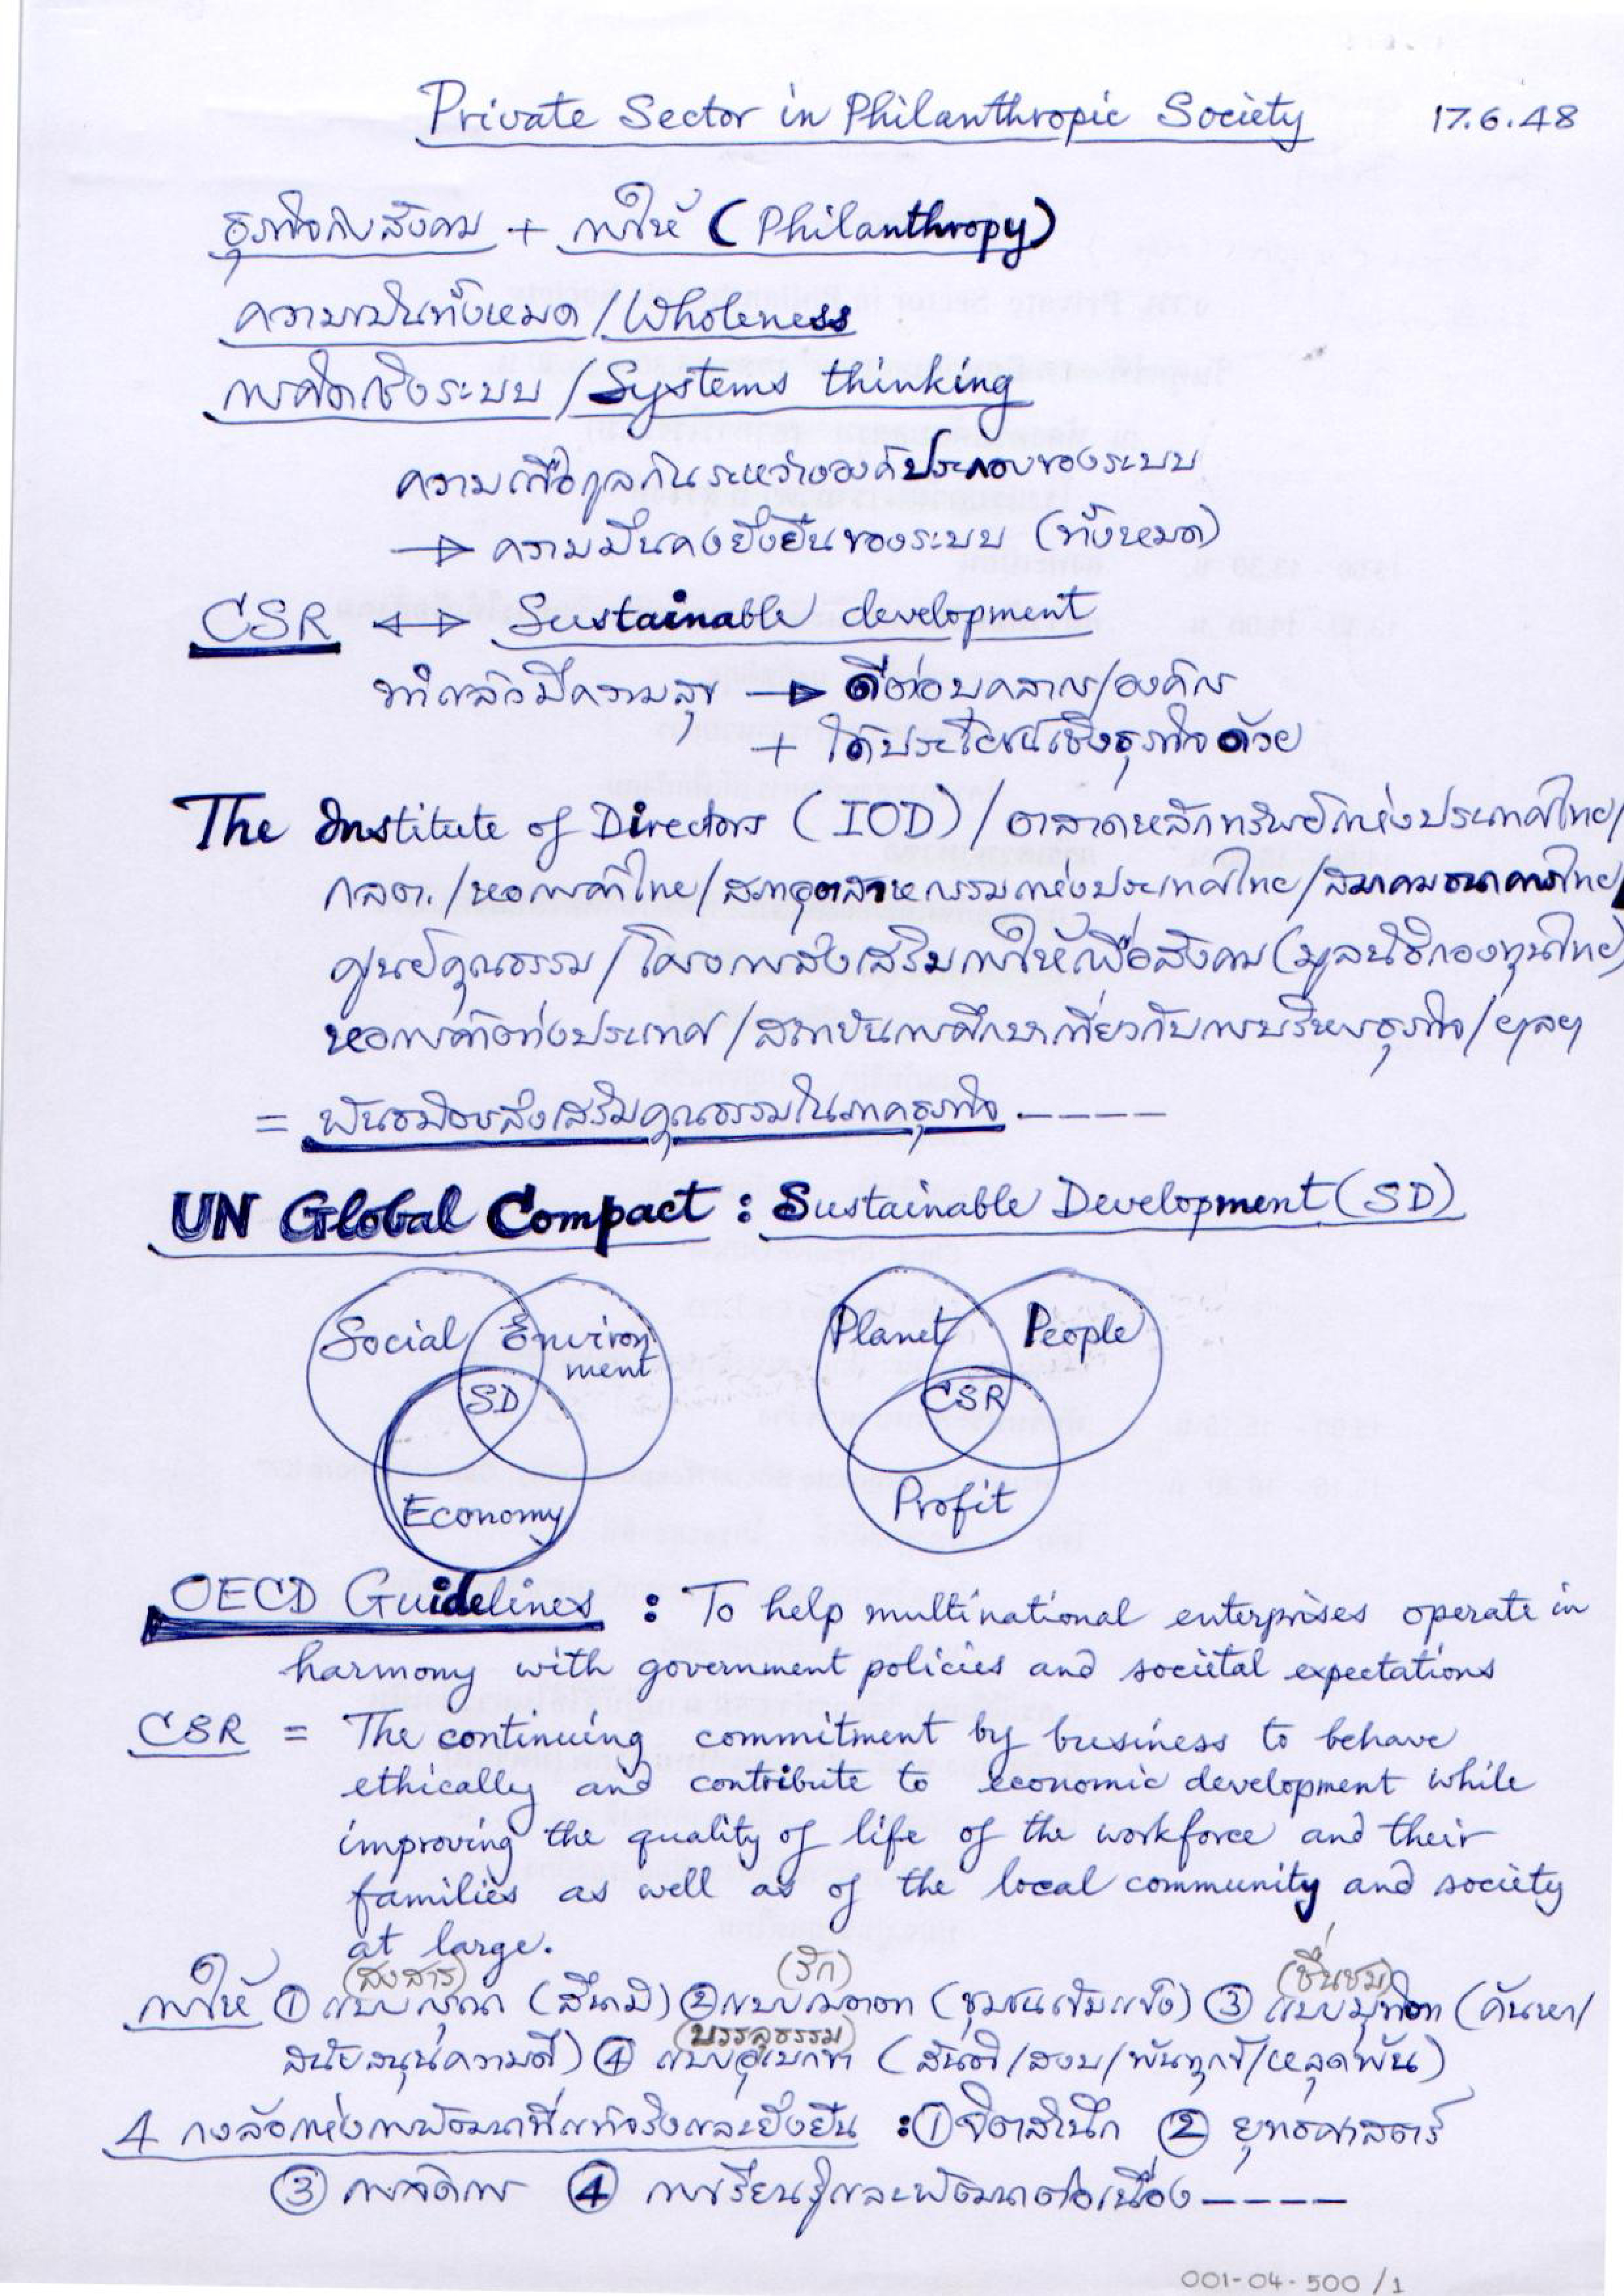 Private Sector in Philanthropic Society 17.6.48
ธุรกิจกับสังคม + การให้ (Philanthropy)
ความเป็นทั้งหมด / Wholeness
การคิดเชิงระบบ / Systems thinking
ความเกื้อกูลกันระหว่างองค์ประกอบของระบบ
→ ความมั่นคงยั่งยืนของระบบ (ทั้งหมด)
CSR ↔ Sustainable development
ทำแล้วมีความสุข → ดีต่อบุคลากร/องค์กร
+ ได้ประโยชน์เชิงธุรกิจด้วย
The Institute of Directors (IOD) / ตลาดหลักทรัพย์แห่งประเทศไทย/
กลต. /หอการค้าไทย/สภาอุตสาหกรรมแห่งประเทศไทย/สมาคมธนาคารไทย/
ศูนย์คุณธรรม/โครงการส่งเสริมการให้เพื่อสังคม(มูลนิธิกองทุนไทย)
หอการค้าต่างประเทศ/สถาบันการศึกษาเกี่ยวกับการบริหารธุรกิจ/ฯลฯ
= พันธมิตรส่งเสริมคุณธรรมในภาคธุรกิจ -----
UN Global Compact : Sustainable Development (SD)
Social Environ Planet People
ment
SD CSR
Economy Profit
OECD Guidelines : To help multinational enterprises operate in
harmony with government policies and societal expectations
CSR = The continuing commitment by business to behave
ethically and contribute to economic development while
improving the quality of life of the workforce and their
families as well as of the local community and society
at large.
(สงสาร) (รัก) (ชื่นชม)
การให้ ① แบบกรุณา (สึนามิ) ② แบบเมตตา (ชุมชนเข้มแข็ง) ③ แบบมุทิตา (ค้นหา/
(บรรลุธรรม)
สนับสนุนความดี) ④ แบบอุเบกขา (สันติ/สงบ/พ้นทุกข์/หลุดพ้น)
4 กงล้อแห่งการพัฒนาที่แท้จริงและยั่งยืน : ① จิตสำนึก ② ยุทธศาสตร์
③ การจัดการ ④ การเรียนรู้และพัฒนาต่อเนื่อง -----
001-04-500 /1